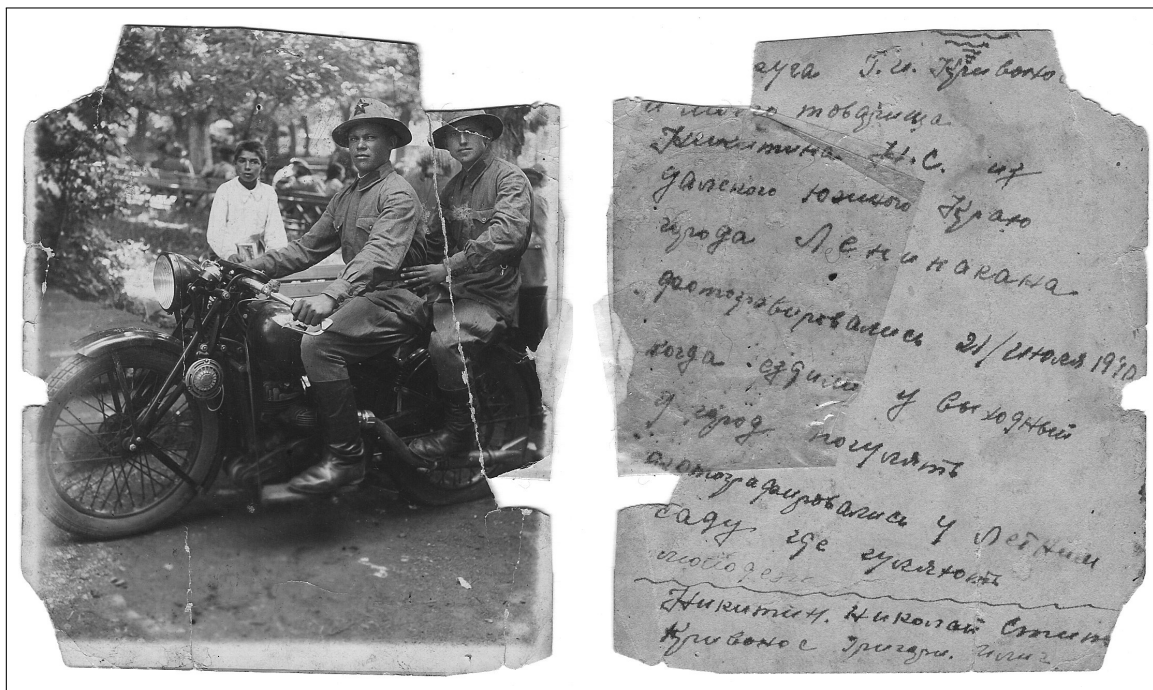 Г.И. Кривоно
и моего товарища
Никитина Н.С. из
далского южного Краю
города Ленинакана
фотографировались 21/июля 1940
когда ездили у выходный
у город погулять
фотографировались у Летним
саду где гуляють
молодежь
Никитин. Николай Степ
Кривонос Григори. Илич